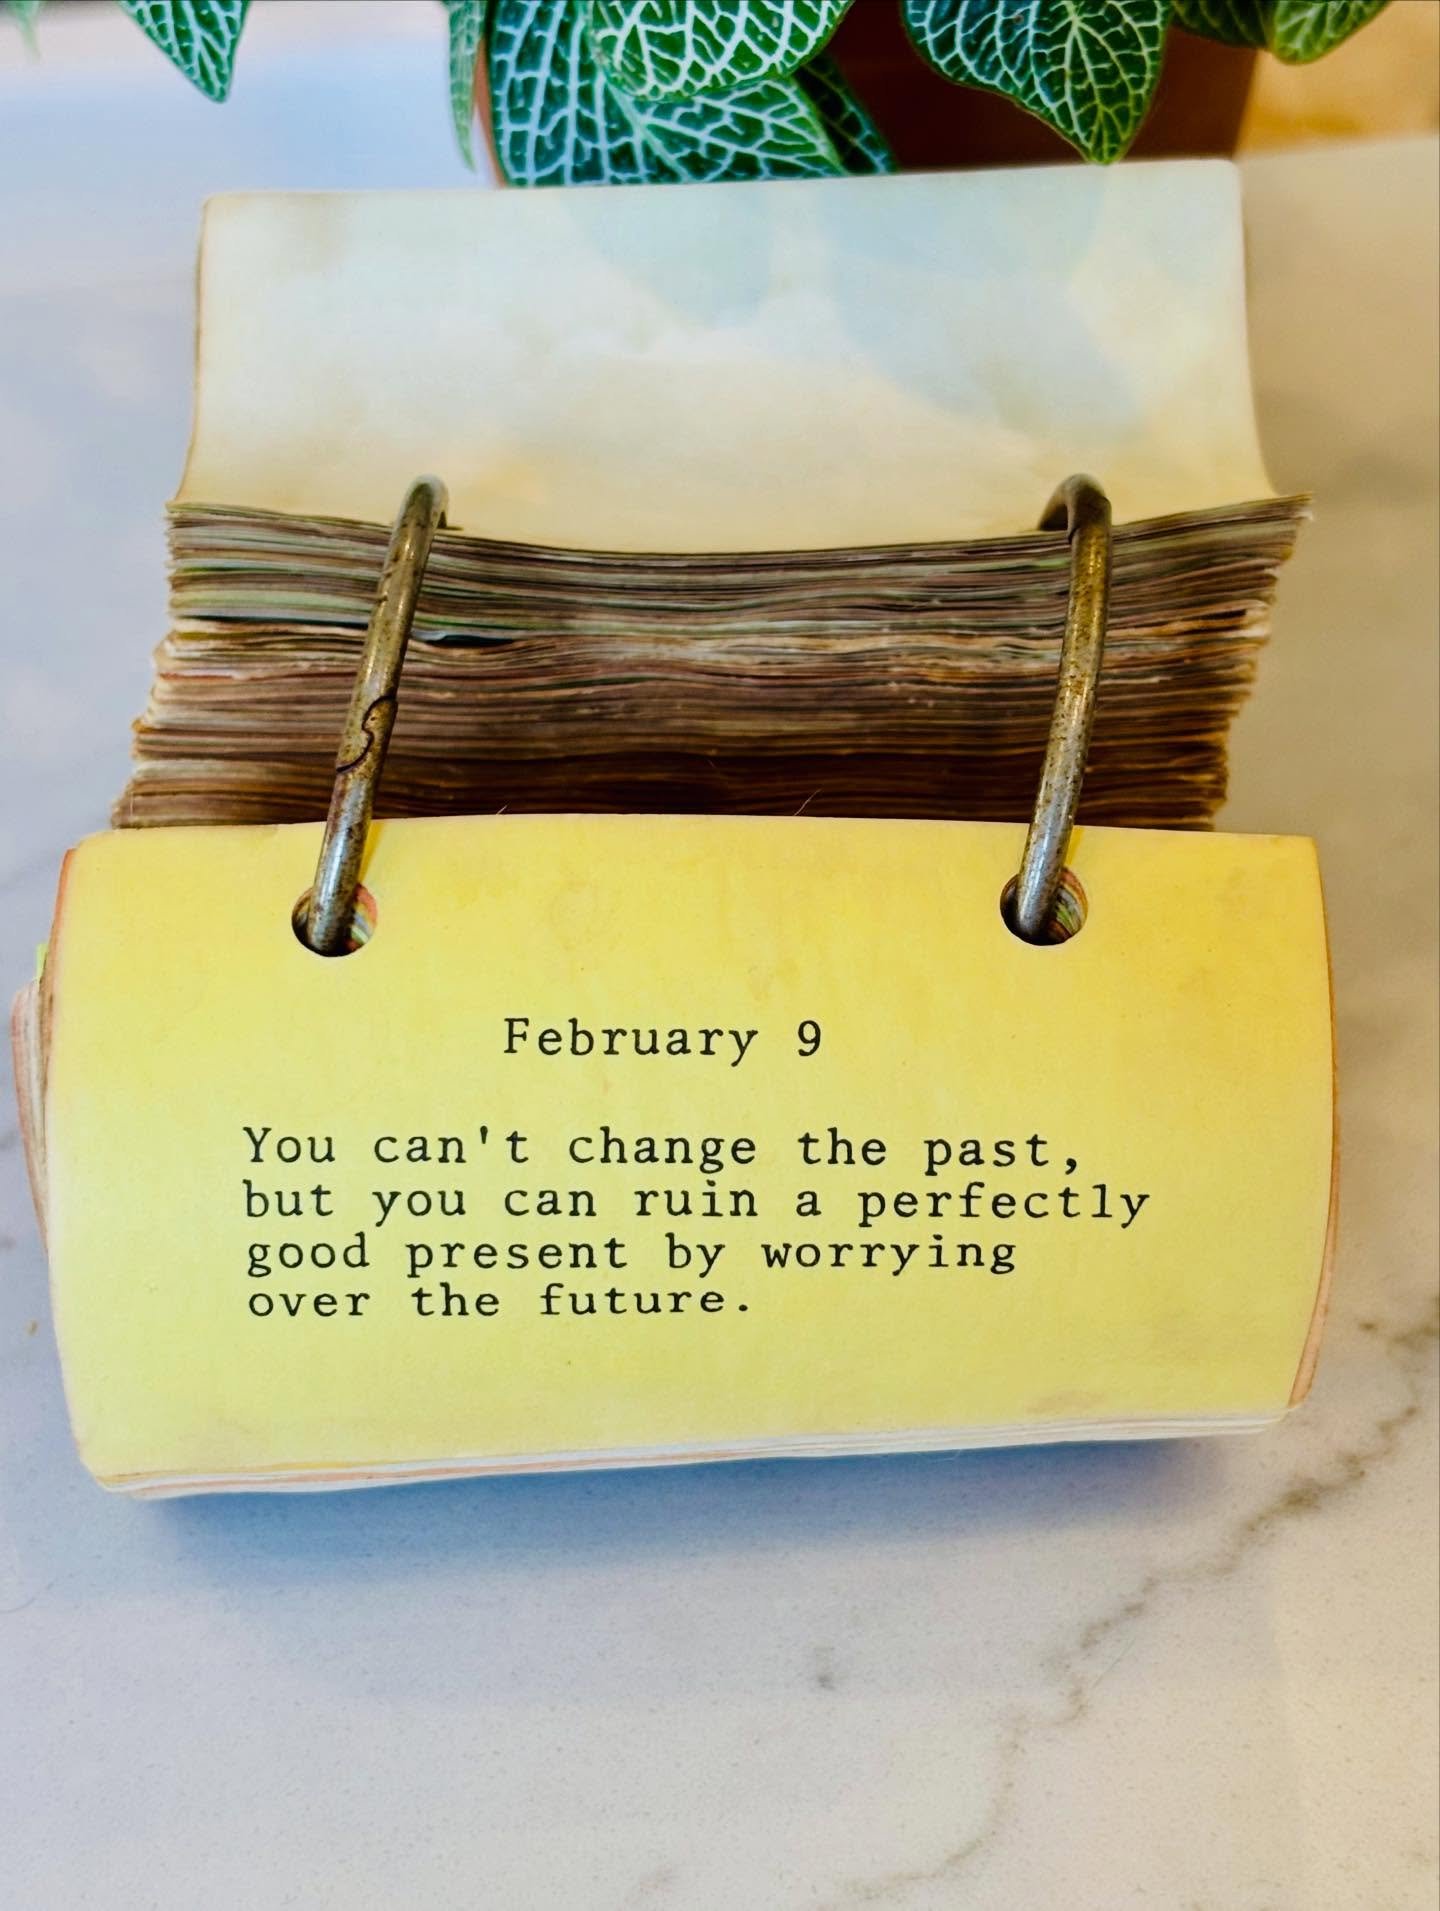 February 9
You can't change the past,
but you can ruin a perfectly
good present by worrying
over the future.